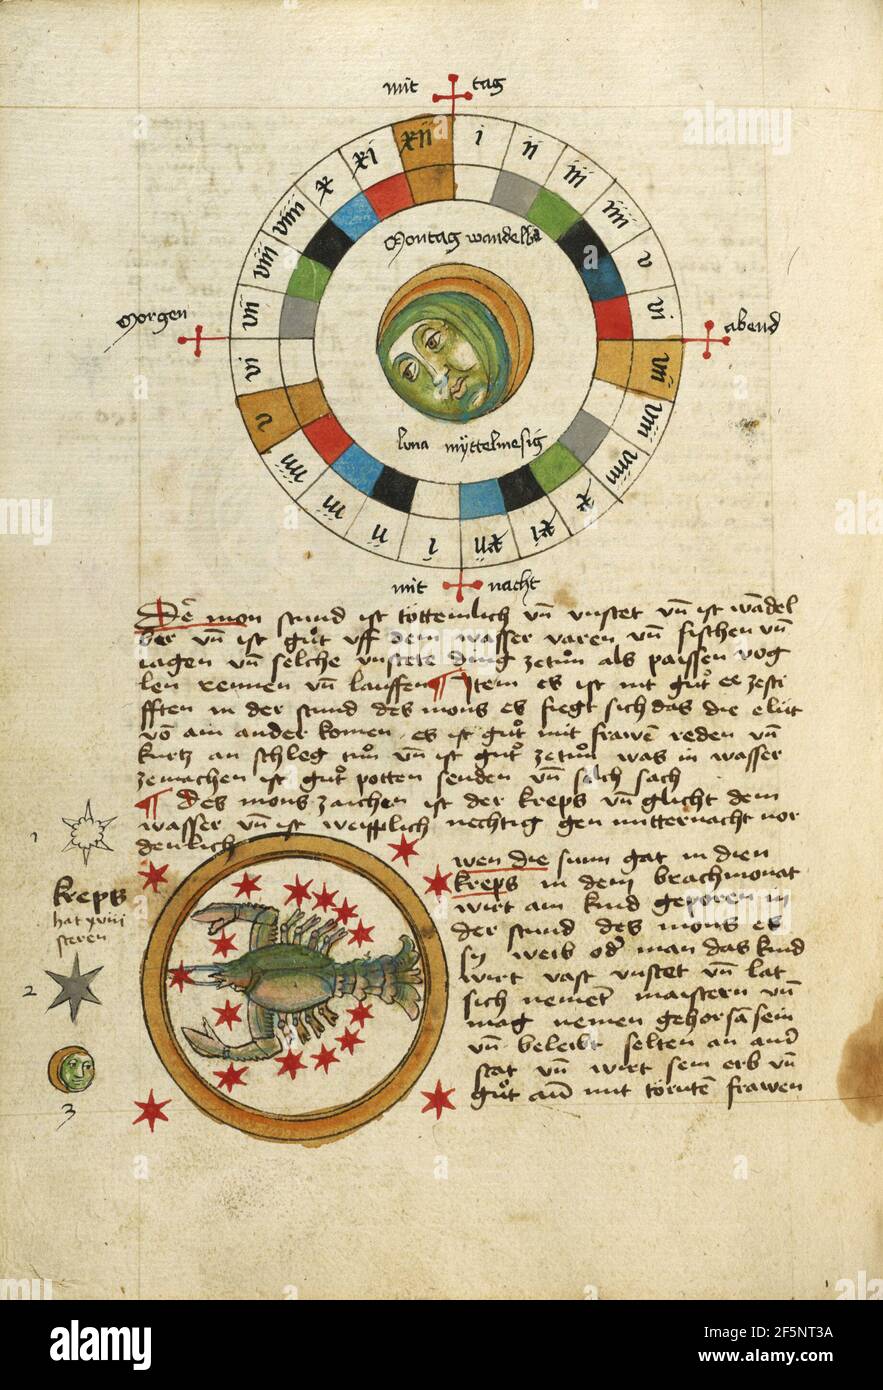 mit tag
xii i ii iii iiii v vi vii viii viiii x xi xii i ii iii iiii v vi vii viii viiii x xi
Montag wandelbar
Morgen
abend
luna myttelmesig
mit nacht
De mon stund ist töttemlich vn vnstet vn ist wandel
ber vn ist guot vff dem wasser varen vn fischen vn
iagen vn solche vnstete ding zetuon als paissen vog
len rennen vn lauffen ¶ Item es ist nit guot ee zesti
fften in der stund des mons es fiegt sich das die elüt
von ain ander komen es ist guot mit frawen reden vn
kurtz an schleg tuon vn ist guot zetuon was in wasser
zemachen ist guot potten senden vn solich sach
¶ Des mons zaichen ist der kreps vn glicht dem
wasser vn ist weipplich nechtig gen mitternacht nor
denlich
1
kreps
hat xviii
steren
2
3
wen die sunn gat in dien
kreps in dem brachmonat
wirt ain kind geporen in
der stund des mons es
sy weib oder man das kind
wirt vast vnstet vn lat
sich nemen maistern vn
mag nemen gehorsam sein
vn beleibt selten an ainer
stat vn wirt sein erb vn
guot an mit frawen
alamy
Image ID: 2F5NT3A
www.alamy.com